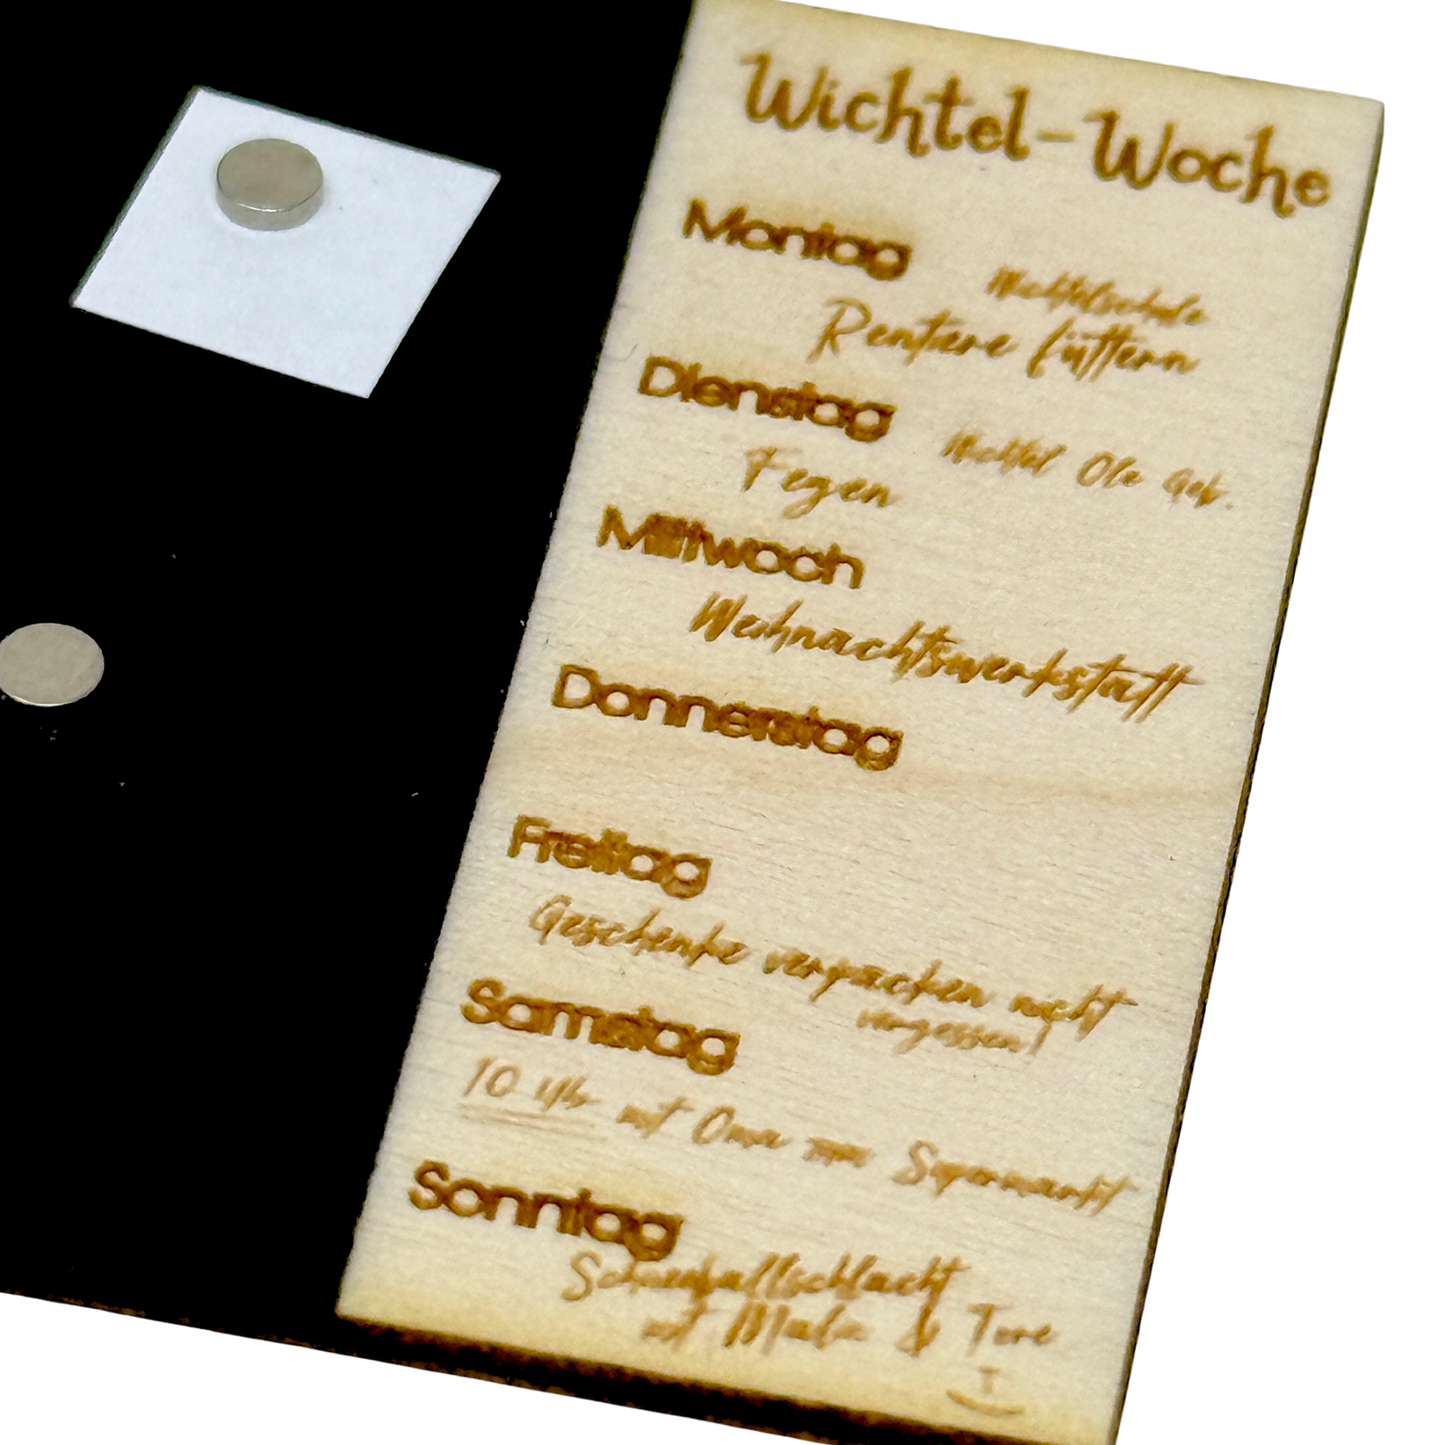 Wichtel-Woche
Montag
Wichtelschule
Rentiere füttern
Dienstag
Wichtel Ole Geb.
Fegen
Mittwoch
Weihnachtswerkstatt
Donnerstag
Freitag
Geschenke verpacken nicht
vergessen!
Samstag
10 Uhr mit Oma zum Supermarkt
Sonntag
Schneeballschlacht
mit Malin & Tore